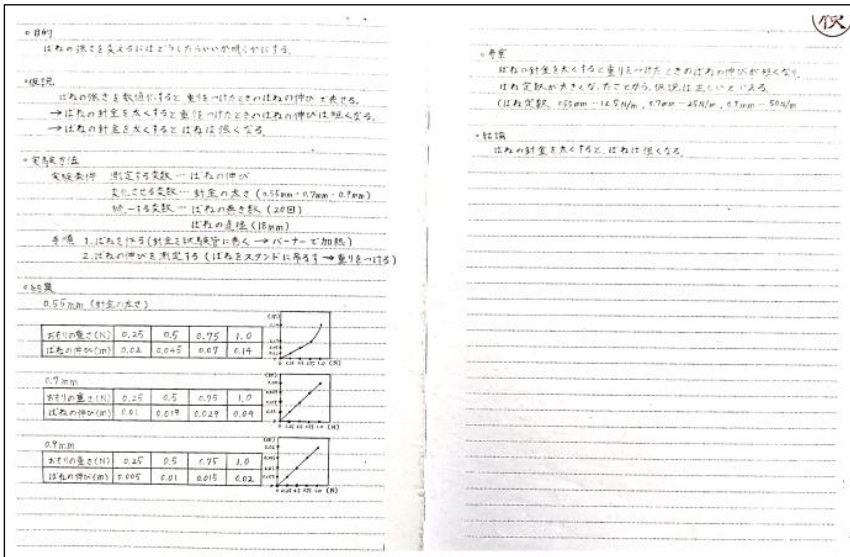 ◦目的
ばねの強さを変えるにはどうしたらいいか明らかにする。
◦仮説
ばねの強さを数値化すると重りをつけたときのばねの伸びで表せる。
→ばねの針金を太くすると重りをつけたときのばねの伸びは短くなる。
→ばねの針金を太くするとばねは強くなる。
◦実験方法
実験条件 測定する変数…ばねの伸び
変化させる変数…針金の太さ(0.55mm・0.7mm・0.9mm)
統一する変数…ばねの巻き数(20回)
ばねの直径(18mm)
手順 1.ばねを作る(針金を試験管に巻く→バーナーで加熱)
2.ばねの伸びを測定する(ばねをスタンドに吊るす→重りをつける)
◦結果
0.55mm(針金の太さ)
おもりの重さ(N) 0.25 0.5 0.75 1.0
ばねの伸び(m) 0.02 0.045 0.07 0.14
0.7mm
おもりの重さ(N) 0.25 0.5 0.75 1.0
ばねの伸び(m) 0.01 0.019 0.029 0.04
0.9mm
おもりの重さ(N) 0.25 0.5 0.75 1.0
ばねの伸び(m) 0.005 0.01 0.015 0.02
◦考察
ばねの針金を太くすると重りをつけたときのばねの伸びが短くなり、
ばね定数が大きくなったことから、仮説は正しいといえる。
(ばね定数 0.55mm…12.5N/m, 0.7mm…25N/m, 0.9mm…50N/m
◦結論
ばねの針金を太くすると、ばねは強くなる。